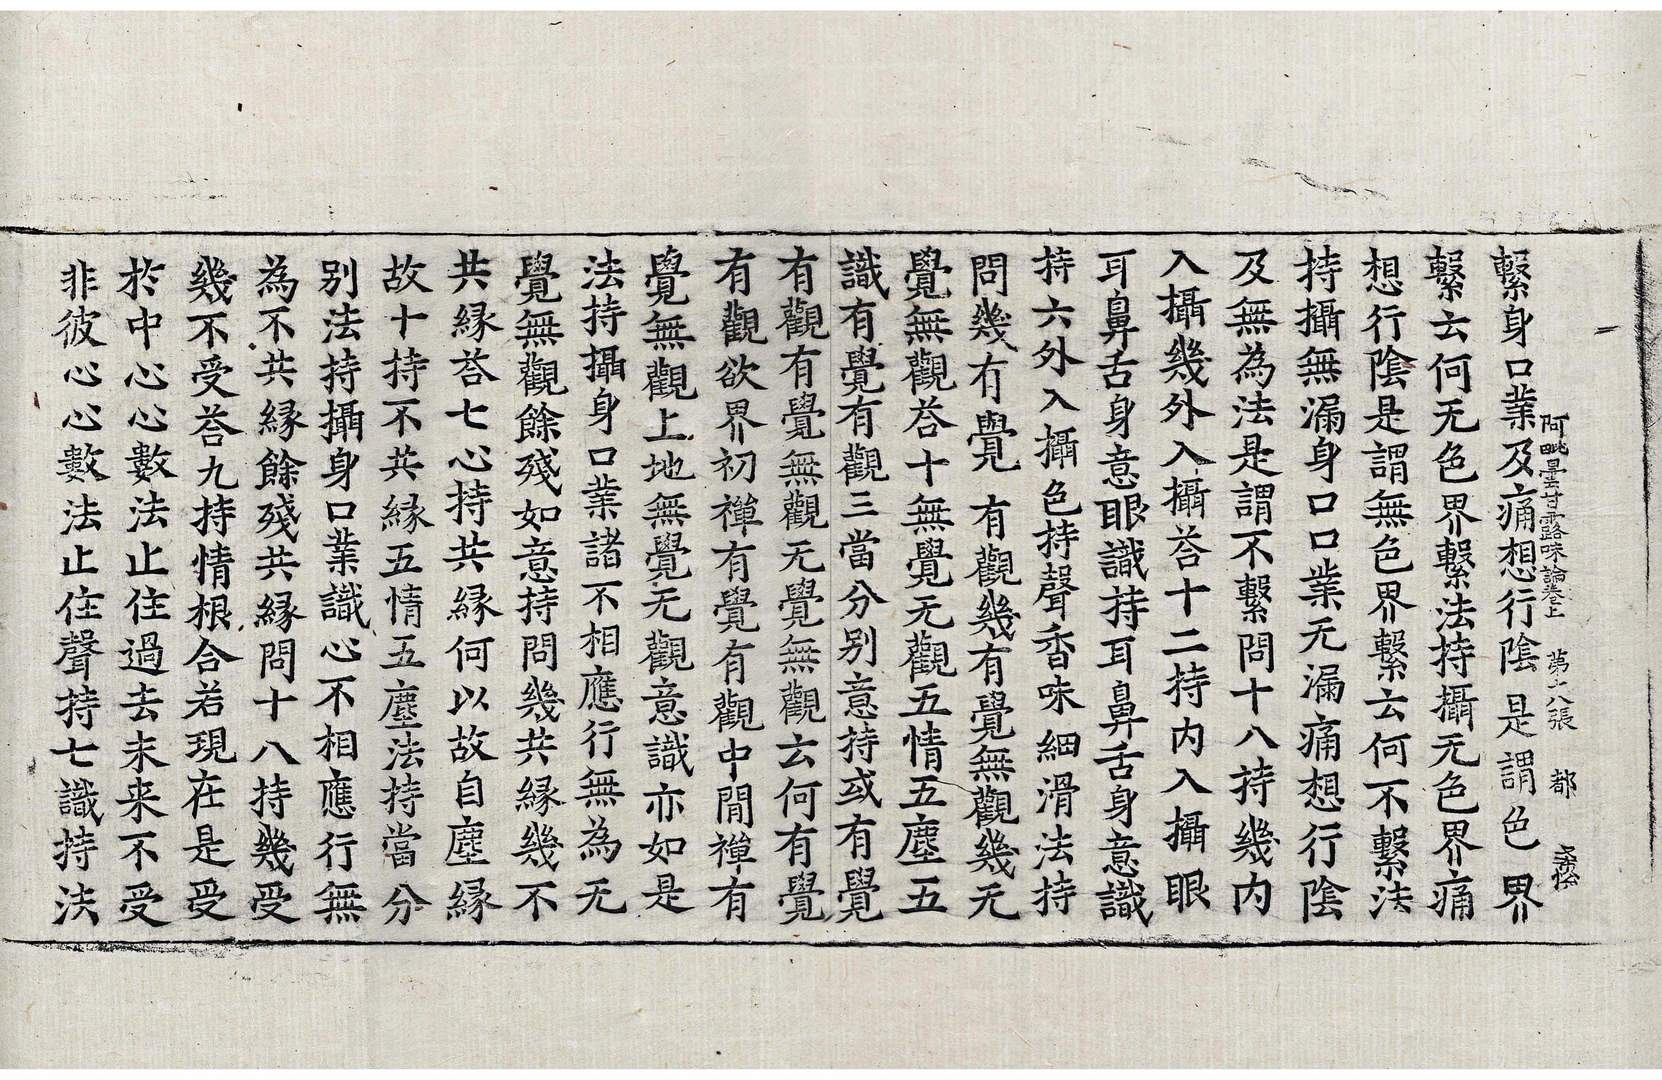 阿毗曇甘露味論卷上　第十八張　都
繫身口業及痛想行陰是謂色界
繫云何无色界繫法持攝无色界痛
想行陰是謂無色界繫云何不繫法
持攝無漏身口口業无漏痛想行陰
及無為法是謂不繫問十八持幾內
入攝幾外入攝荅十二持內入攝眼
耳鼻舌身意眼識持耳鼻舌身意識
持六外入攝色持聲香味細滑法持
問幾有覺有觀幾有覺無觀幾无
覺無觀荅十無覺无觀五情五塵五
識有覺有觀三當分別意持或有覺
有觀有覺無觀无覺無觀云何有覺
有觀欲界初禪有覺有觀中間禪有
覺無觀上地無覺无觀意識亦如是
法持攝身口業諸不相應行無為无
覺無觀餘殘如意持問幾共緣幾不
共緣荅七心持共緣何以故自塵緣
故十持不共緣五情五塵法持當分
別法持攝身口業識心不相應行無
為不共緣餘殘共緣問十八持幾受
幾不受荅九持情根合若現在是受
於中心心數法止住過去未來不受
非彼心心數法止住聲持七識持法